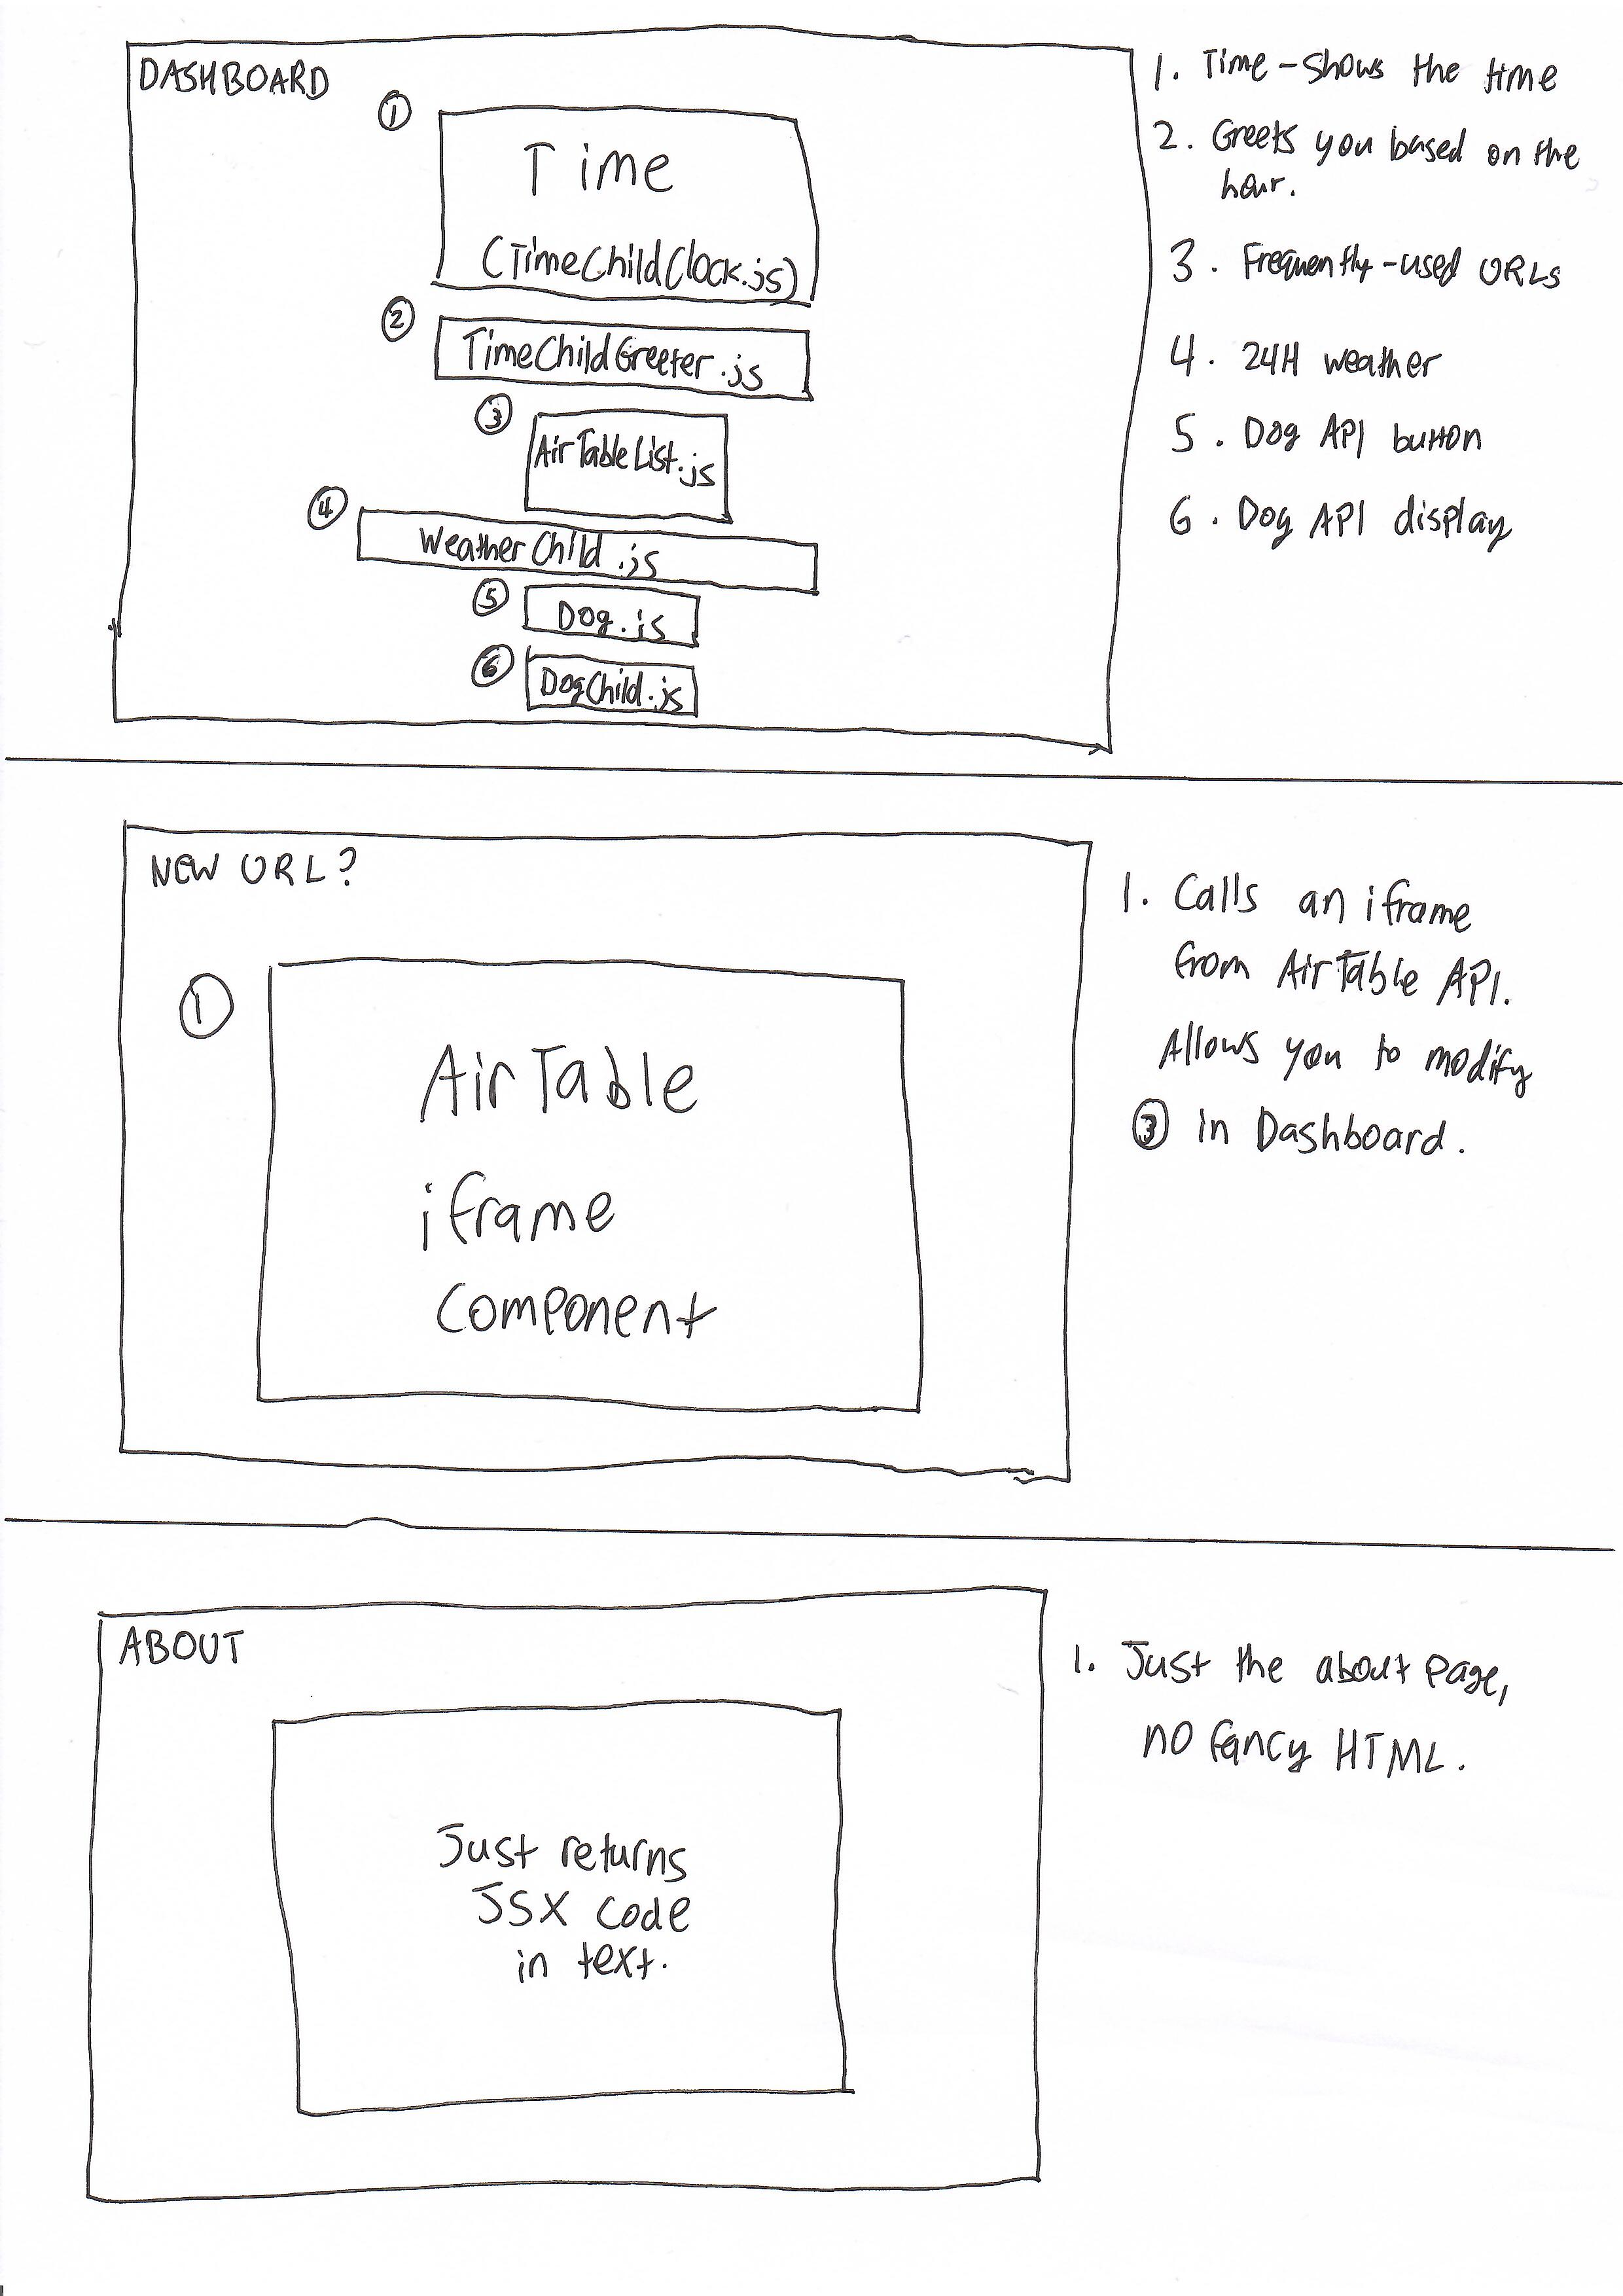 DASHBOARD
1
Time
(TimeChildClock.js)
2
TimeChildGreeter.js
3
AirTableList.js
4
WeatherChild.js
5
Dog.js
6
DogChild.js
1. Time - Shows the time
2. Greets you based on the
hour.
3. Frequently-used URLs
4. 24H weather
5. Dog API button
6. Dog API display
NEW URL?
1
AirTable
iframe
component
1. Calls an iframe
from AirTable API.
Allows you to modify
3 in Dashboard.
ABOUT
Just returns
JSX code
in text.
1. Just the about page,
no fancy HTML.